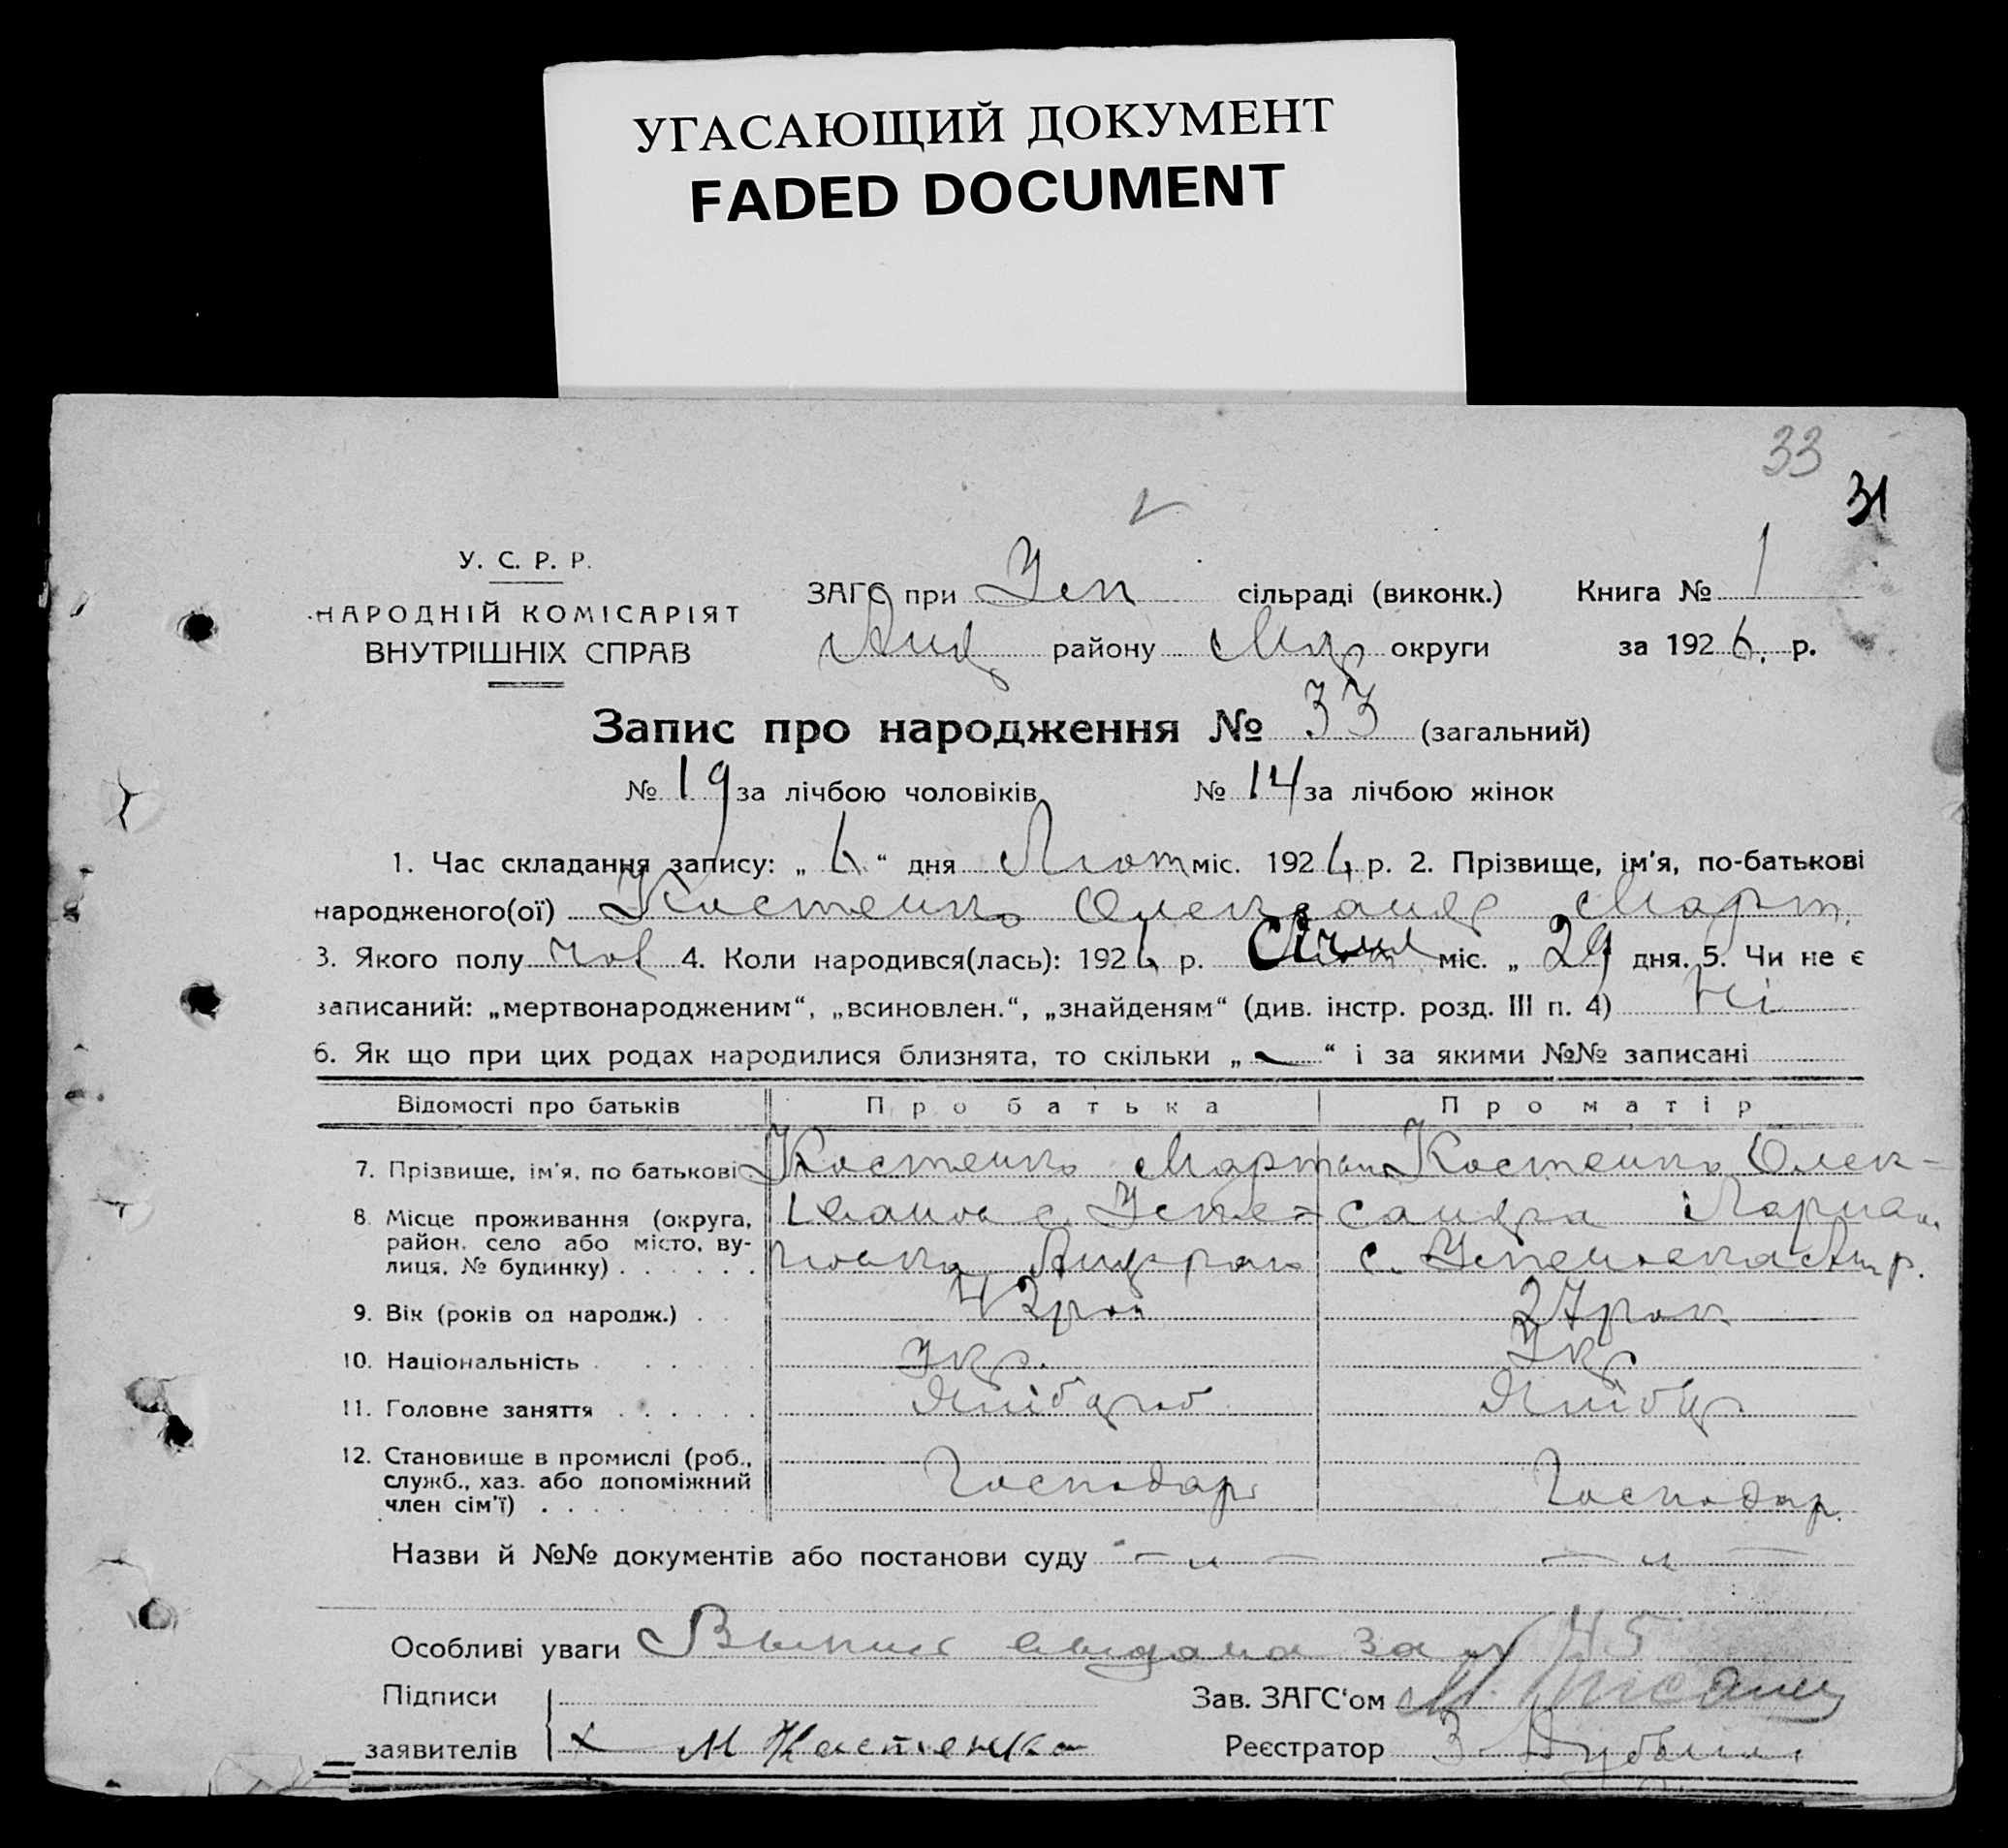 УГАСАЮЩИЙ ДОКУМЕНТ
FADED DOCUMENT
33
31
У. С. Р. Р.
НАРОДНІЙ КОМІСАРІЯТ
ВНУТРІШНІХ СПРАВ
ЗАГС при Усп сільраді (виконк.) Книга № 1
району округи за 1926. р.
Запис про народження № 33 (загальний)
№ 19 за лічбою чоловіків № 14 за лічбою жінок
1. Час складання запису: „ 6 “ дня Лют міс. 1926 р. 2. Прізвище, ім'я, по-батькові
народженого(ої) Костенко Олександр Март.
3. Якого полу чол 4. Коли народився(лась): 1926 р. Січня міс. „ 29 дня. 5. Чи не є
записаний: „мертвонародженим“, „всиновлен.“, „знайденям“ (див. інстр. розд. III п. 4) Ні
6. Як що при цих родах народилися близнята, то скільки „ — “ і за якими №№ записані
Відомості про батьків Про батька Про матір
7. Прізвище, ім'я, по батькові Костенко Мартин Костенко Олек-
8. Місце проживання (округа, Іванов с. Успе- сандра
район, село або місто, ву-
лиця, № будинку) . . . . . . с. Успеновка
9. Вік (років од народж.) . . 42 рок 27 рок
10. Національність . . . . . . Укр. Укр
11. Головне заняття . . . . . . Хлібороб Хлібор
12. Становище в промислі (роб.,
служб., хаз. або допоміжний Господар Господар.
член сім'ї) . . . . . . .
Назви й №№ документів або постанови суду — „ — — „ —
Особливі уваги Выпись выдана за № 45
Підписи Зав. ЗАГС'ом
заявителів х М Костенко Реєстратор З.